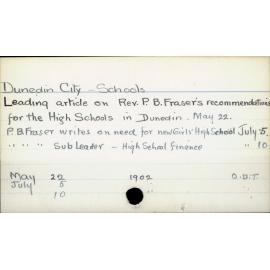 Dunedin City - Schools
Leading article on Rev. P. B. Fraser's recommendations
for the High Schools in Dunedin. May 22.
P. B. Fraser writes on need for new Girls' High School July 5.
" " " Sub Leader - High School Finance " 10
May 22 1902 O.D.T.
July 5
10